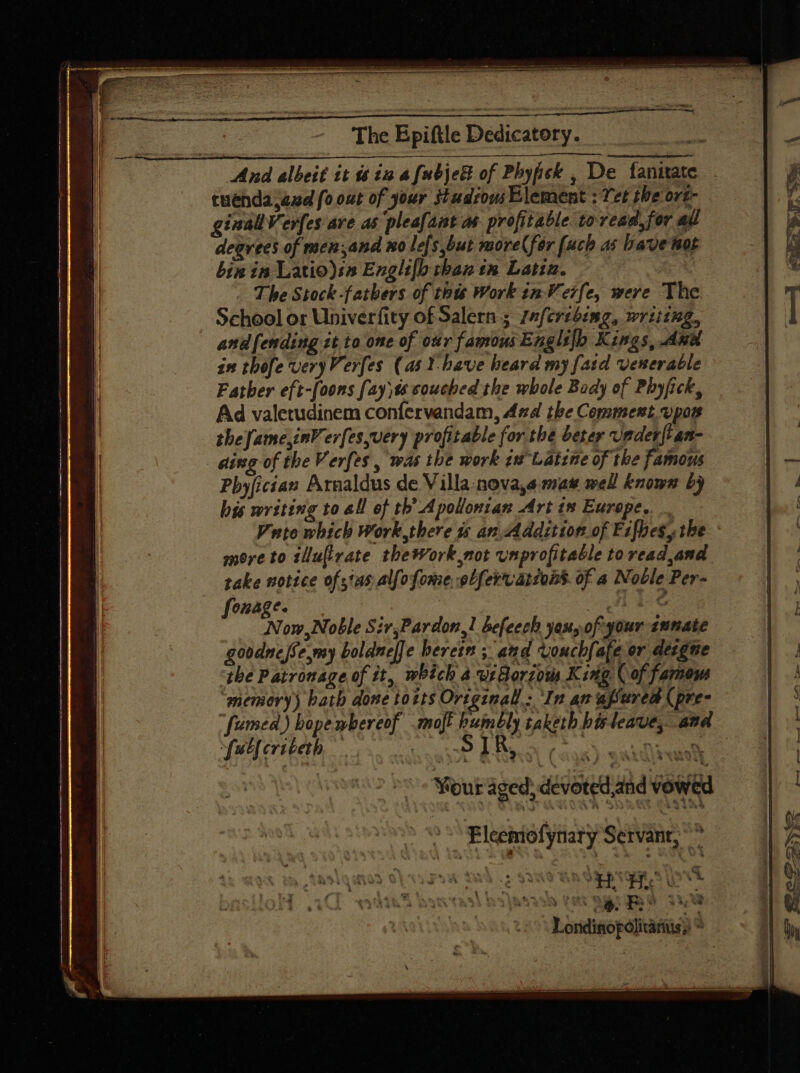 The Epiſtle Dedicatory.
And albeit it is in a ſubject of Phyſick , De ſanitate
tuenda,and ſo out of your Studious Element : Yet the ori-
ginall Verſes are as pleaſant as profitable to read,for all
degrees of men;and no leſs,but more(for ſuch as have not
bin in Latio)in Engliſh than in Latin.
The Stock-fathers of this Work in Verſe, were The
School or Univerſity of Salern ; Inſcribing, writing,
and ſending it to one of our famous Engliſh Kings, And
in thoſe very Verſes (as I have heard my ſaid venerable
Father eft-ſoons ſay)is couched the whole Body of Phyſick,
Ad valetudinem conſervandam, And the Comment upon
the ſame,in Verſes,very profitable for the beter underſtan-
ding of the Verſes , was the work in Latine of the famous
Phyſician Arnaldus de Villa-nova,a man well known by
his writing to all of th' Apollonian Art in Europe.
Vnto which Work,there is an Addition of Fiſhes, the
more to illuſtrate the Work,not unprofitable to read,and
take notice of,as alſo ſome obſervations of a Noble Per-
ſonage.
Now,Noble Sir,Pardon,I beſeech you,of your innate
goodneſſe,my boldneſſe herein ; and vouchſafe or deigne
the Patronage of it, which a victorious King (of famous
memory) hath done to its Originall : In an aſſured (pre-
ſumed) hope whereof moſt humbly taketh his leave, and
ſubſcribeth
SIR,
Your aged, devoted,and vowed
Eleemoſynary Servant,
H. H.
Londinopolitanus,